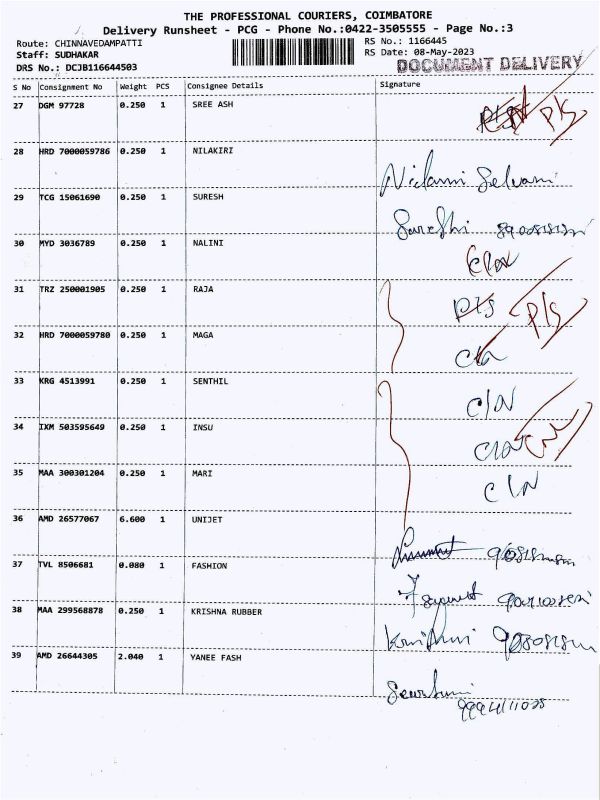 THE PROFESSIONAL COURIERS, COIMBATORE
Delivery Runsheet - PCG - Phone No.:0422-3505555 - Page No.:3
Route: CHINNAVEDAMPATTI RS No.: 1166445
Staff: SUDHAKAR RS Date: 08-May-2023
DRS No.: DCJB116644503 DOCUMENT DELIVERY
S No Consignment No Weight PCS Consignee Details Signature
27 DGM 97728 0.250 1 SREE ASH P/S
28 HRD 7000059786 0.250 1 NILAKIRI
29 TCG 15061690 0.250 1 SURESH
30 MYD 3036789 0.250 1 NALINI
31 TRZ 250001905 0.250 1 RAJA P/S P/S
32 HRD 7000059780 0.250 1 MAGA
33 KRG 4513991 0.250 1 SENTHIL C/N
34 IXM 503595649 0.250 1 INSU C/N
35 MAA 300301204 0.250 1 MARI C/N
36 AMD 26577067 6.600 1 UNIJET
37 TVL 8506681 0.080 1 FASHION
38 MAA 299568878 0.250 1 KRISHNA RUBBER
39 AMD 26644305 2.040 1 YANEE FASH